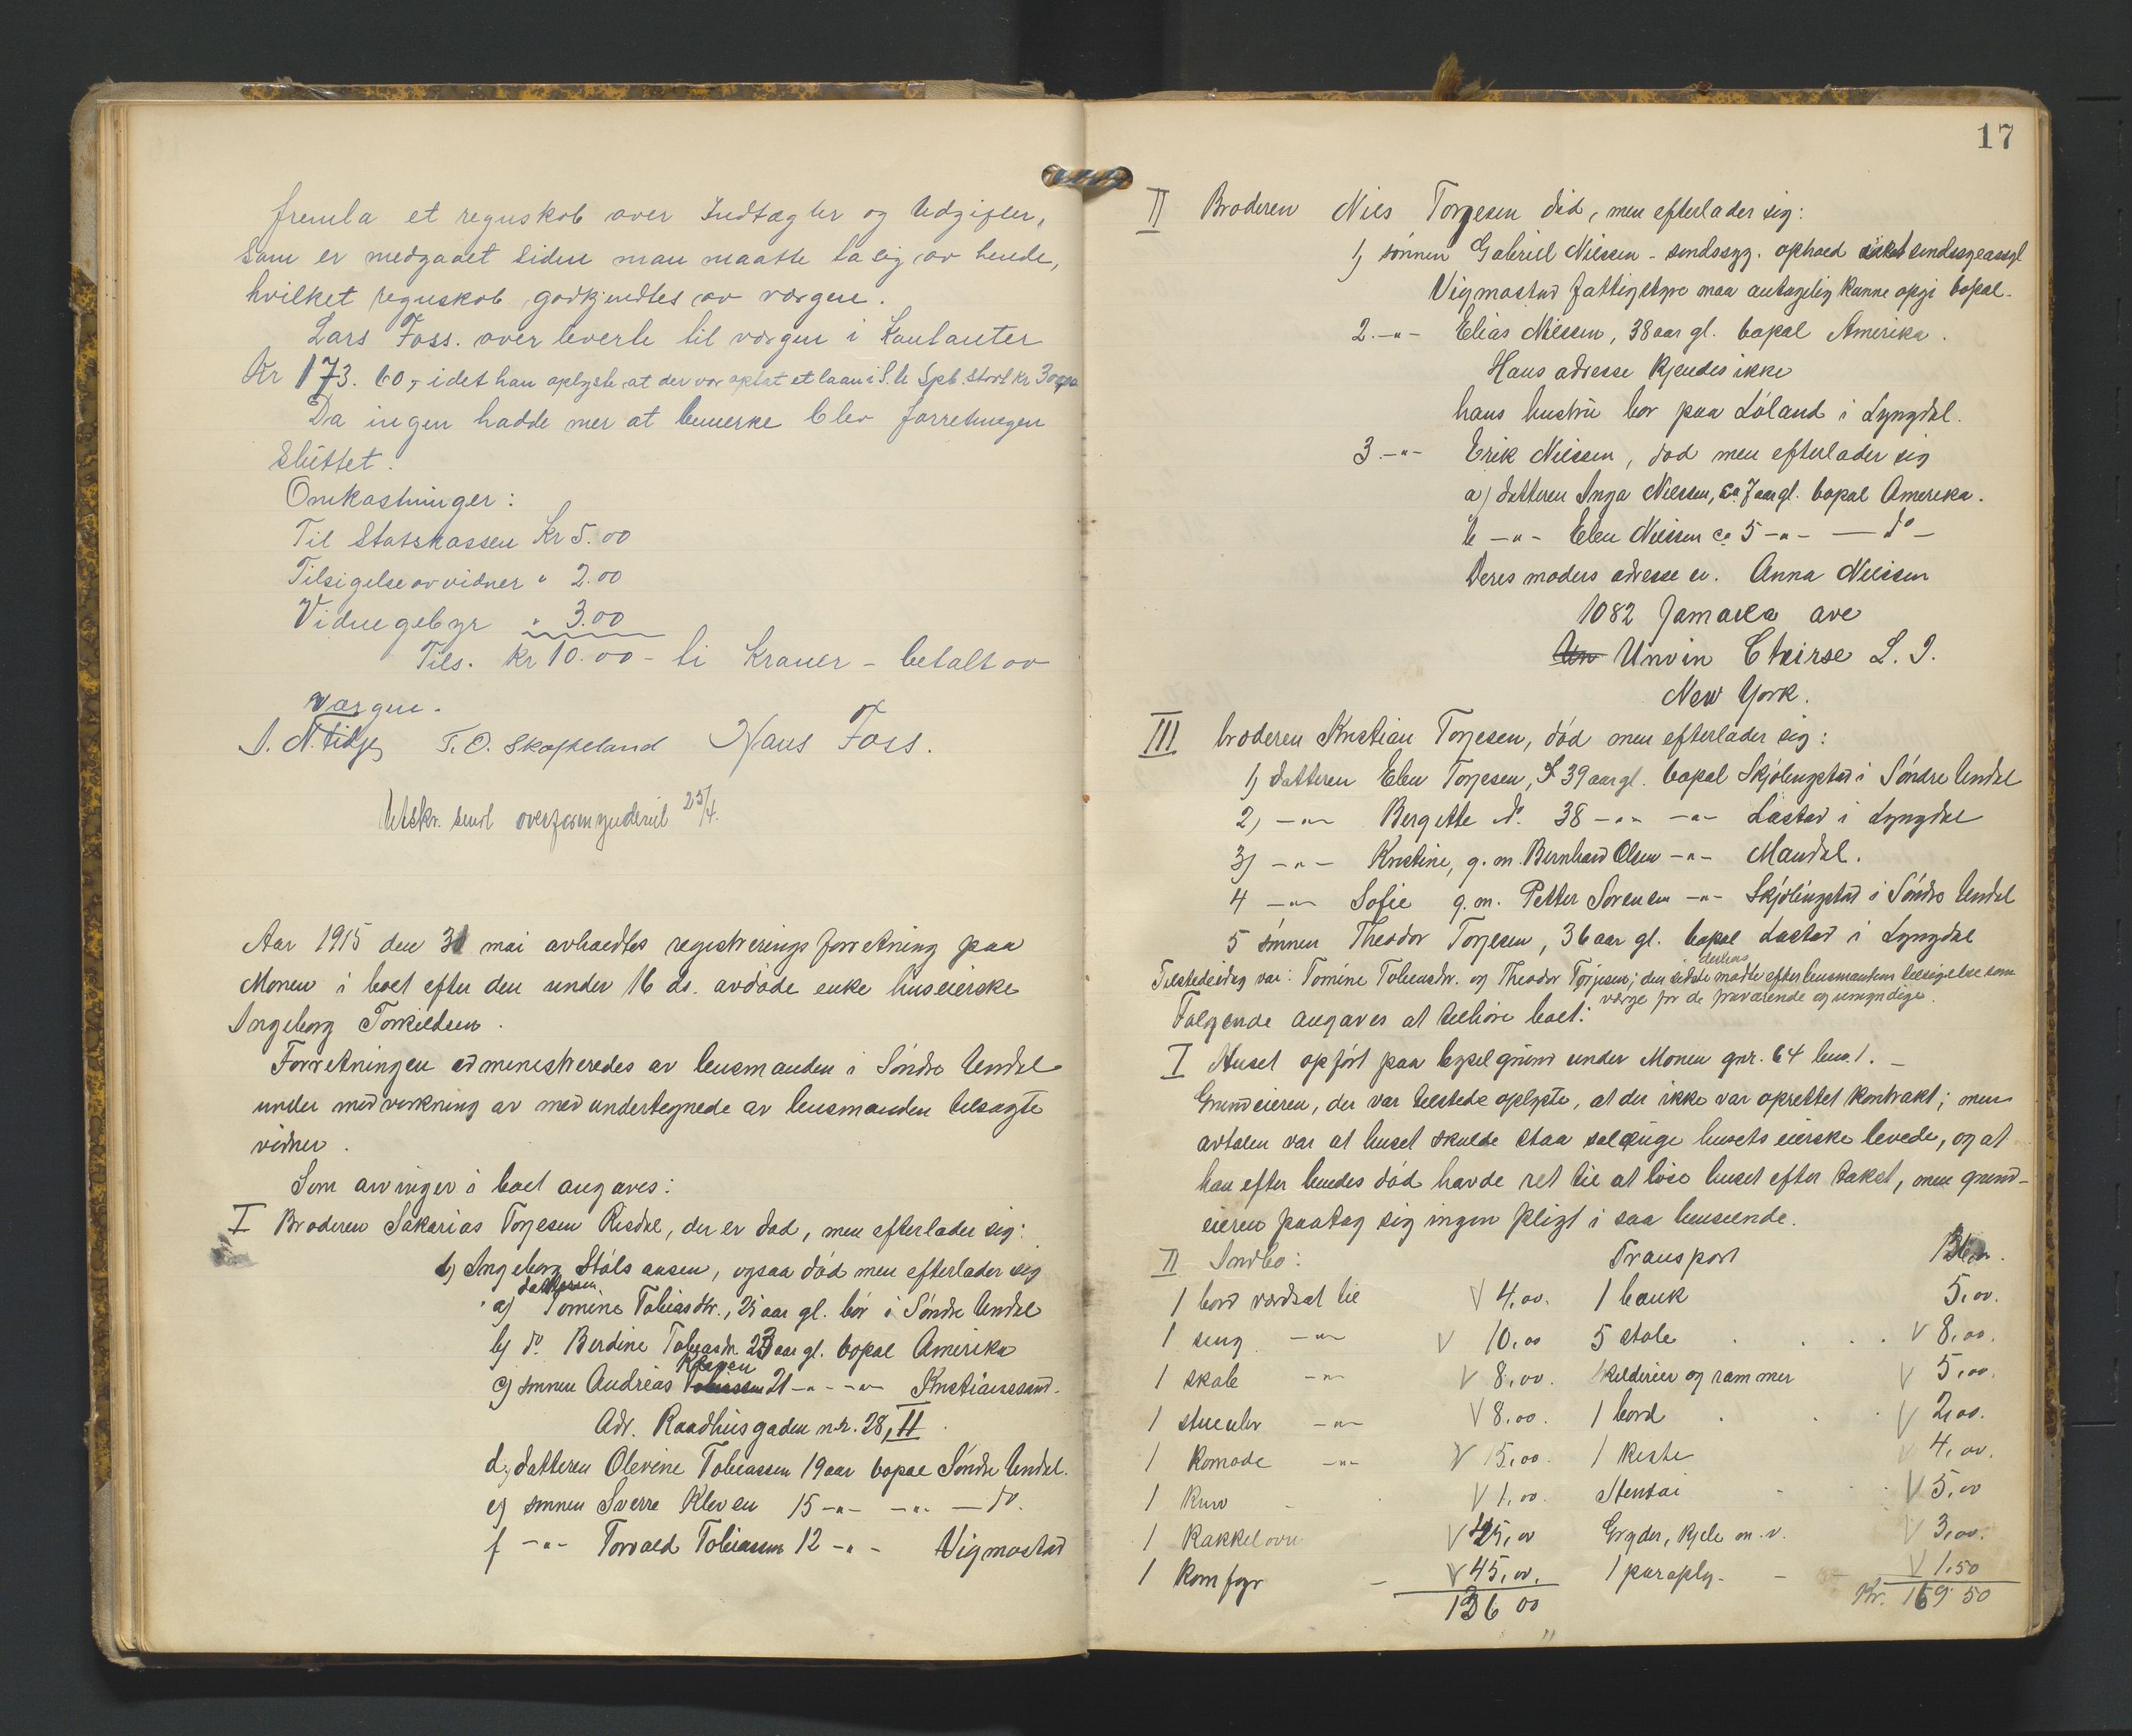 fremla et regnskab over Indtægter og Udgifter,
som er medgaaet siden man maatte ta sig av hende,
hvilket regnskab godkjendtes av værgen.
Lars Foss. over leverte til værgen i Kontanter
Kr 173.60,- idet han oplyste at der var optat et laan i S. U. Spb. stort kr 300,00
Da ingen hadde mer at bemerke blev forretningen
Sluttet.
Omkostninger:
Til Statskassen Kr 5.00
Tilsigelse av vidner " 2.00
Vidnegebyr " 3.00
Tils. Kr 10.00 - ti Kroner - betalt av
værgen.
T. O. Skofteland Hans Foss.
Utskr. sendt overformynderiet 25/4.
Aar 1915 den 31 mai avholdtes registrerings forretning paa
Monen i boet efter den under 16 ds. avdøde enke huseierske
Ingeborg Torkildsen.
Forretningen administreredes av lensmanden i Søndre Undal
under medvirkning av med undertegnede av lensmanden tilsagte
vidner.
Som arvinger i boet angaves:
I Broderen Sakarias Torjesen Risdal, der er død, men efterlader sig:
1) Ingeborg Stålsansen, ogsaa död men efterlader sig
datteren
a) Tomine Tobiasdtr., 25 aar gl. bor i Søndre Undal
b) do Berdine Tobiasdtr 23 aar gl. bopæl Amerika
Kleven
c) sønnen Andreas Tobiassen 21 -"- -"- Kristianssand.
Adr. Raadhusgaden nr. 28, II
d, datteren Olevine Tobiassen 19 aar bopæl Søndre Undal.
e) sønnen Sverre Kleven 15 -"- -"- - do.
f -"- Torvald Tobiassen 12 -"- Vigmostad
17
II Broderen Niels Torjesen død, men efterlader sig:
1) sønnen Gabriel Nielsen - sindssyg. ophold sindssygeasyl
Vigmostad fattigstyre maa antagelig kunne opgi bopæl.
2.-"- Elias Nielsen, 38 aar gl. bopæl Amerika.
Hans adresse kjendes ikke
hans hustru bor paa Løland i Lyngdal.
3.-"- Erik Nielsen, død men efterlader sig
a) datteren Inga Nielsen, ca 7 aar gl. bopæl Amerika.
b -"- Elen Nielsen ca 5 -"- - do -
Deres moders adresse er. Anna Nielsen
1082 Jamaeka ave
Un Unvin Chirse L. I.
New York.
III broderen Kristian Torjesen, död men efterlader sig:
1) datteren Elen Torjesen, 39 aar gl. bopæl Skjølingstad i Söndre Undal
2) -"- Bergitte do. 38 -"- -"- Lastad i Lyngdal
3) -"- Kristine, g. m. Bernhard Olsen -"- Mandal.
4 -"- Sofie g. m. Petter Sørensen -"- Skjölingstad i Søndre Undal
5 sønnen Theodor Torjesen, 36 aar gl. bopæl Lastad i Lyngdal
derhos
Tilstede idag var: Tomine Tobiasdtr. og Theodor Torjesen; den sidste mødte efter lensmandens tilsigelse som
værge for de fraværende og umyndige.
Følgende angaves at tilhöre boet:
I Huset opfört paa bygselgrund under Monen gnr. 64 bno. 1. -
Grundeieren, der var tilstede oplyste, at der ikke var oprettet kontrakt; men
avtalen var at huset skulde staa saalænge husets eierske levede, og at
han efter hendes död havde ret til at löse huset efter takst, men grund-
eieren paatog sig ingen pligt i saa henseende.
II Indbo: Transport
1 bord værdsat til V 4,00. 1 bænk 5,00.
1 seng -"- V 10,00 5 stole V 8,00.
1 skab -"- V 8,00. skilderier og rammer V 5,00.
1 stueuhr -"- V 8,00. 1 bord V 2,00.
1 Komode -"- V 15,00. 1 kiste V 4,00.
1 Kurv V 1,00. Stentøi V 5,00
1 Kakkelovn V 45,00 Gryder, kjele m. v. V 3,00.
1 Komfyr - V 45,00. 1 paraply - V 1,50
136 00 Kr. 169 50